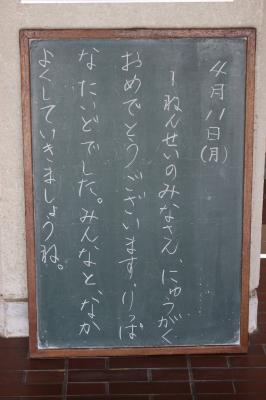 4月11日(月)
1ねんせいのみなさん、にゅうがく
おめでとうございます。りっぱ
なたいどでした。みんなと、なか
よくしていきましょうね。